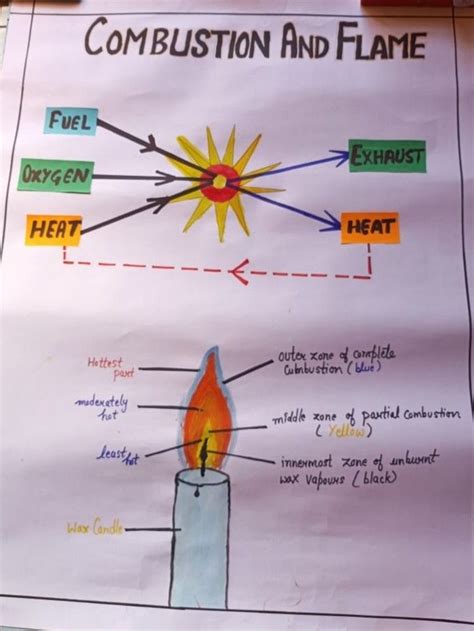 COMBUSTION AND FLAME
FUEL
OXYGEN
HEAT
EXHAUST
HEAT
Hottest
part
moderately
hot
least
hot
Wax Candle
outer zone of complete
Cumbustion (blue)
middle zone of partial combustion
(Yellow)
innermost zone of unburnt
wax vapours (black)